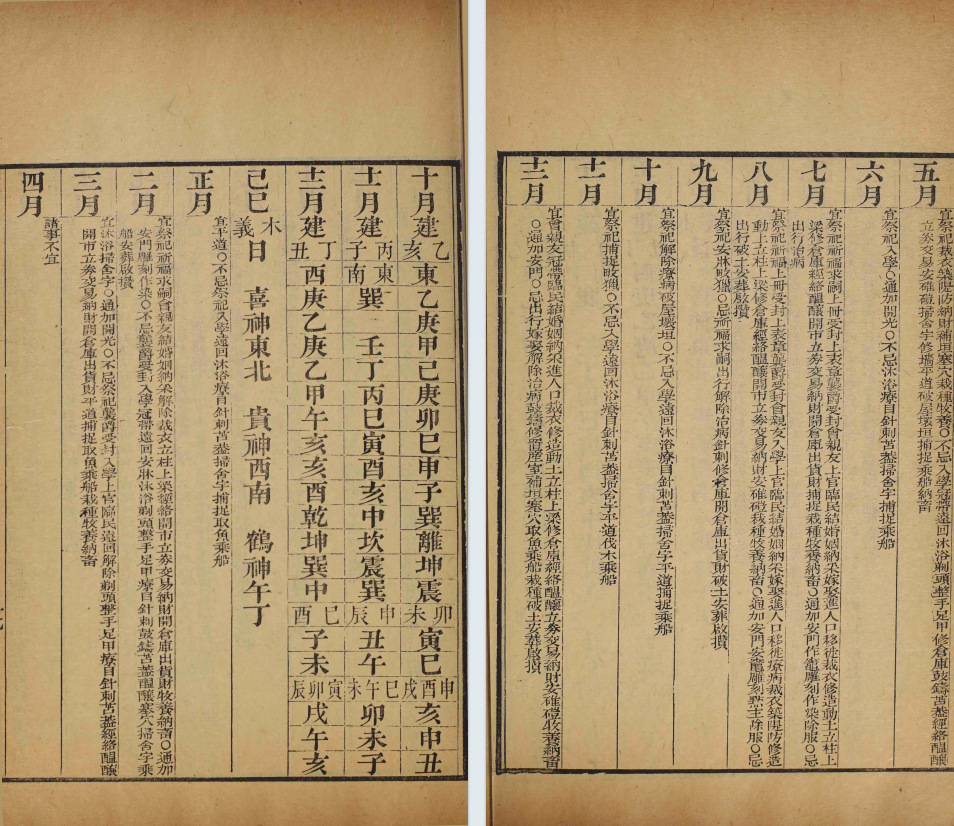 十月建乙亥東乙庚甲己庚卯巳申子巽離坤震卯未寅巳申酉戌亥申丑
十一月建丙子東南巽壬丁丙巳寅酉亥中坎震巽申辰丑午巳午未卯未子
十二月建丁丑西庚乙庚乙甲午亥亥酉乾坤巽中巳酉子未寅卯辰戌午亥
己巳木義日 喜神東北 貴神西南 鶴神午丁
正月
宜平道〇不忌祭祀入學遠回沐浴療目針刺苫蓋掃舍宇捕捉取魚乘船
二月
宜祭祀祈福求嗣會親友結婚姻納采解除裁衣立柱上梁經絡開市立券交易納財開倉庫出貨財牧養納畜〇通加
安門雕刻作染〇不忌襲爵受封入學冠帶遠回安牀沐浴剃頭整手足甲療目針刺鼓鑄苫蓋醞釀塞穴掃舍宇乘
船安葬啟攢
三月
宜沐浴掃舍宇〇通加開光〇不忌祭祀襲爵受封入學上官臨民遠回解除剃頭整手足甲療目針刺苫蓋經絡醞釀
開市立券交易納財開倉庫出貨財平道捕捉取魚乘船栽種牧養納畜
四月
諸事不宜
五月
宜祭祀裁衣築隄防納財補垣塞穴栽種牧養〇不忌入學冠帶遠回沐浴剃頭整手足甲修倉庫鼓鑄苫蓋經絡醞釀
立券交易安碓磑掃舍宇修墻平道破屋壞垣捕捉乘船納畜
六月
宜祭祀入學〇通加開光〇不忌沐浴療目針刺苫蓋掃舍宇捕捉乘船
七月
宜祭祀祈福求嗣上冊受封上表章襲爵受封會親友上官臨民結婚姻納采嫁娶進人口移徙裁衣修造動土立柱上
梁修倉庫經絡醞釀開市立券交易納財開倉庫出貨財捕捉栽種牧養納畜〇通加安門作竈雕刻作染除服〇忌
出行治病
八月
宜祭祀祈福上冊受封上表章襲爵受封會親友入學上官臨民結婚姻納采嫁娶進人口移徙療病裁衣築隄防修造
動土立柱上梁修倉庫經絡醞釀開市立券交易納財安碓磑栽種牧養納畜〇通加安門安竈雕刻點主除服〇忌
出行破土安葬啟攢
九月
宜祭祀安牀畋獵〇忌祈福求嗣出行解除治病針刺修倉庫開倉庫出貨財破土安葬啟攢
十月
宜祭祀解除療病破屋壞垣〇不忌入學遠回沐浴療目針刺苫蓋掃舍宇平道捕捉乘船
十一月
宜祭祀捕捉畋獵〇不忌入學遠回沐浴療目針刺苫蓋掃舍宇平道伐木乘船
十二月
宜會親友冠帶臨民結婚姻納采進人口裁衣修造動土立柱上梁修倉庫經絡醞釀立券交易納財安碓磑牧養納畜
〇通加安門〇忌出行嫁娶解除治病鼓鑄修置產室補垣塞穴取魚乘船栽種破土安葬啟攢